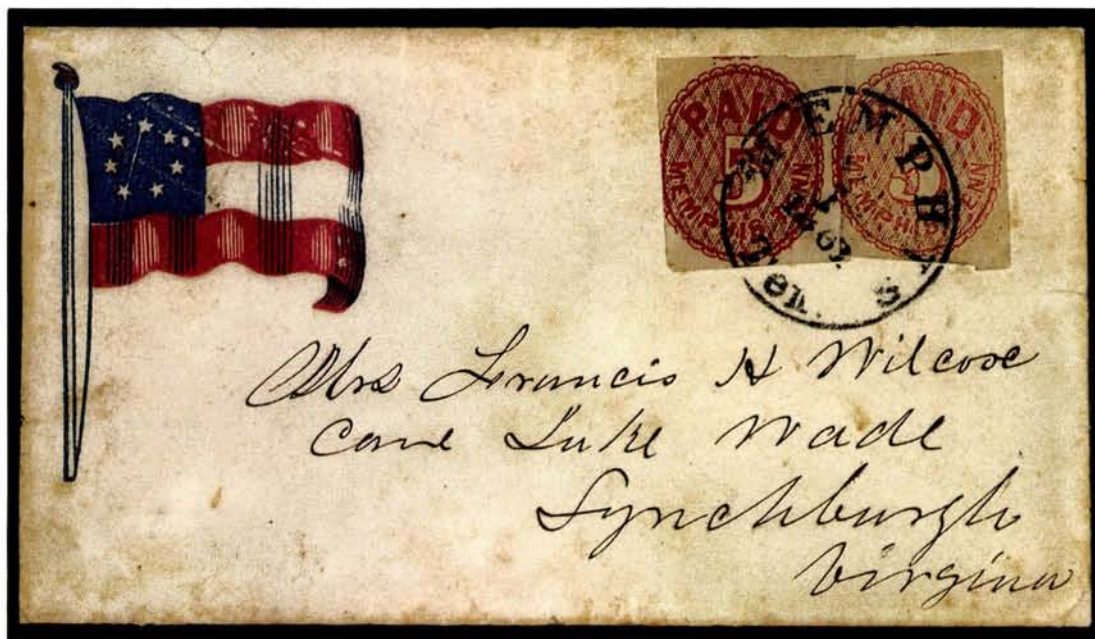 PAID
5
MEMPHIS TENN
PAID
5
MEMPHIS TENN
MEMPHIS
Ten.
Mrs Francis H Wilcox
Care Luke Wade
Lynchburgh
Virgina